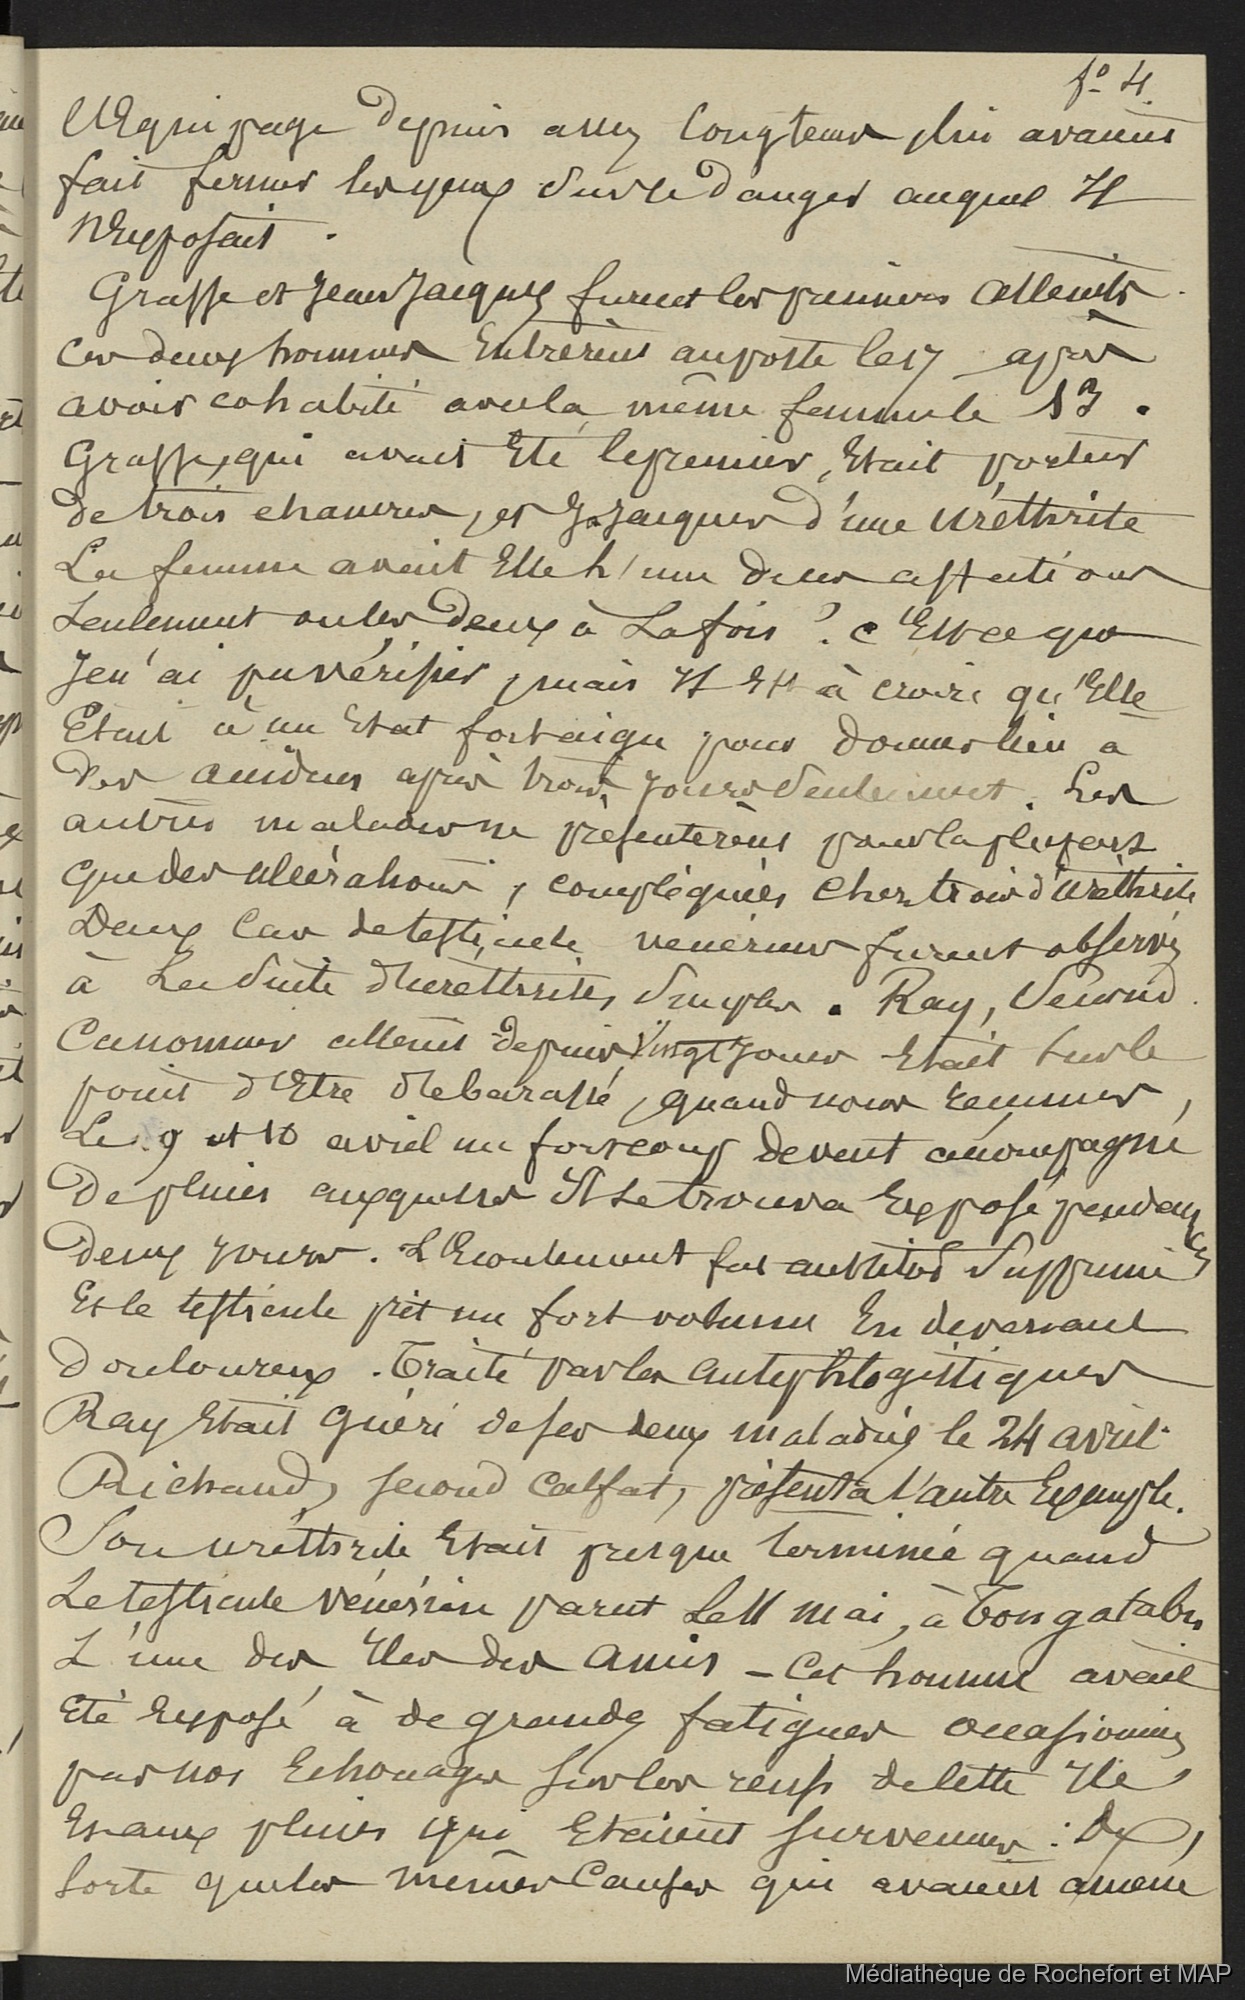 fo 4
l'Equipage depuis assez longtems, lui avaient
fait fermer les yeux sur le danger auquel Il
s'Exposait.
Grasse et Jean Jacques furent les premiers atteints
ces deux hommes Entrèrent au poste le 17 après
avoir cohabité avec la même femme le 13.
Grasse, qui avait Eté le premier, Etait porteur
de trois chancres, et J. Jacques d'une uréthrite
La femme avait Elle l'une de ces affections
seulement ou les deux à La fois ? c'Est ce que
Je n'ai pu vérifier, mais Il Est à croire qu'Elle
Etait à un Etat fort aigu pour donner lieu a
des accidens après trois jours seulement. Les
autres malades ne présentèrent pour la plupart
que des ulcérations, compléquées chez trois d'uréthrite
Deux cas de testicule vénérien furent observés
à La suite d'uréthrites simples. Ray, second
Canonnier atteint depuis vingt jours Etait sur le
point d'Etre débarassé, quand nous reçumes,
Le 9 et 10 avril un fort coup de vent accompagné
De pluies auxquelles Il se trouva Exposé pendant ces
deux jours. L'Ecoulement fut aussitot supprimé
Et le testicule prit un fort volume En devenant
douloureux. Traité par les antiphlogistiques
Ray Etait guéri de ses deux maladies le 24 avril.
Richaud, second calfat, présenta l'autre Exemple.
Son uréthrite Etait presque terminée quand
Le testicule vénérien parut Le 11 mai, à Tongatabu
L'une des Iles des Amis – Cet homme avait
Eté Exposé à de grandes fatigues occasionnées
par nos Echouages sur les récifs de cette Ile,
Et aux pluies qui Etaient survenues : De
sorte que les mêmes causes qui avaient amené
Médiathèque de Rochefort et MAP